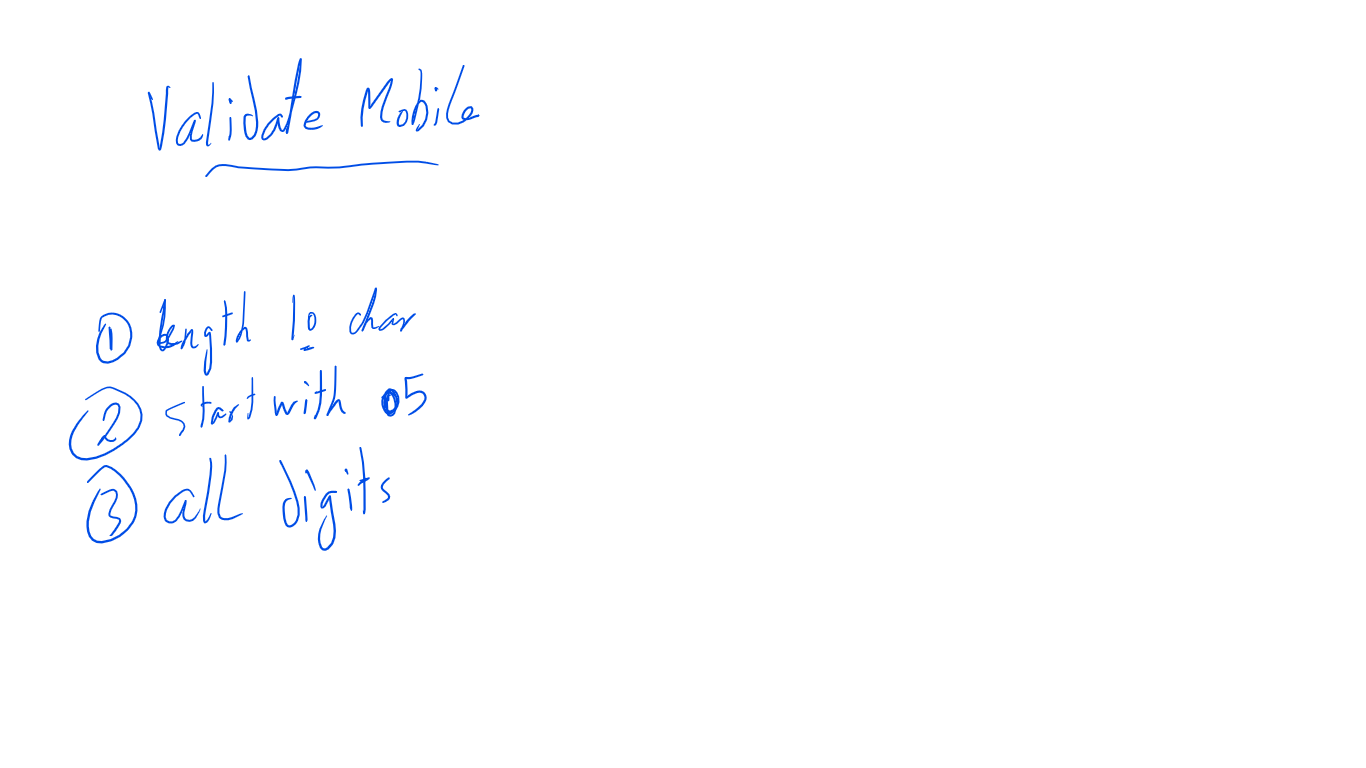 Validate Mobile
① length 10 char
② start with 05
③ all digits